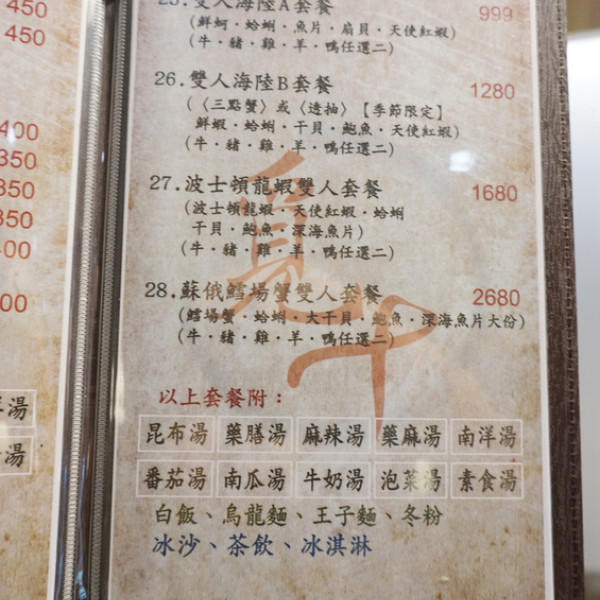 450
450
400
350
350
350
400
00
湯
湯
25.雙人海陸A套餐 999
(鮮蚵・蛤蜊・魚片・扇貝・天使紅蝦)
(牛・豬・雞・羊・鴨任選二)
26.雙人海陸B套餐 1280
(〈三點蟹〉或〈透抽〉【季節限定】
鮮蝦・蛤蜊・干貝・鮑魚・天使紅蝦)
(牛・豬・雞・羊・鴨任選二)
27.波士頓龍蝦雙人套餐 1680
(波士頓龍蝦・天使紅蝦・蛤蜊
干貝・鮑魚・深海魚片)
(牛・豬・雞・羊・鴨任選二)
28.蘇俄鱈場蟹雙人套餐 2680
(鱈場蟹・蛤蜊・大干貝・鮑魚・深海魚片大份)
(牛・豬・雞・羊・鴨任選二)
以上套餐附：
昆布湯 藥膳湯 麻辣湯 藥麻湯 南洋湯
番茄湯 南瓜湯 牛奶湯 泡菜湯 素食湯
白飯、烏龍麵、王子麵、冬粉
冰沙、茶飲、冰淇淋